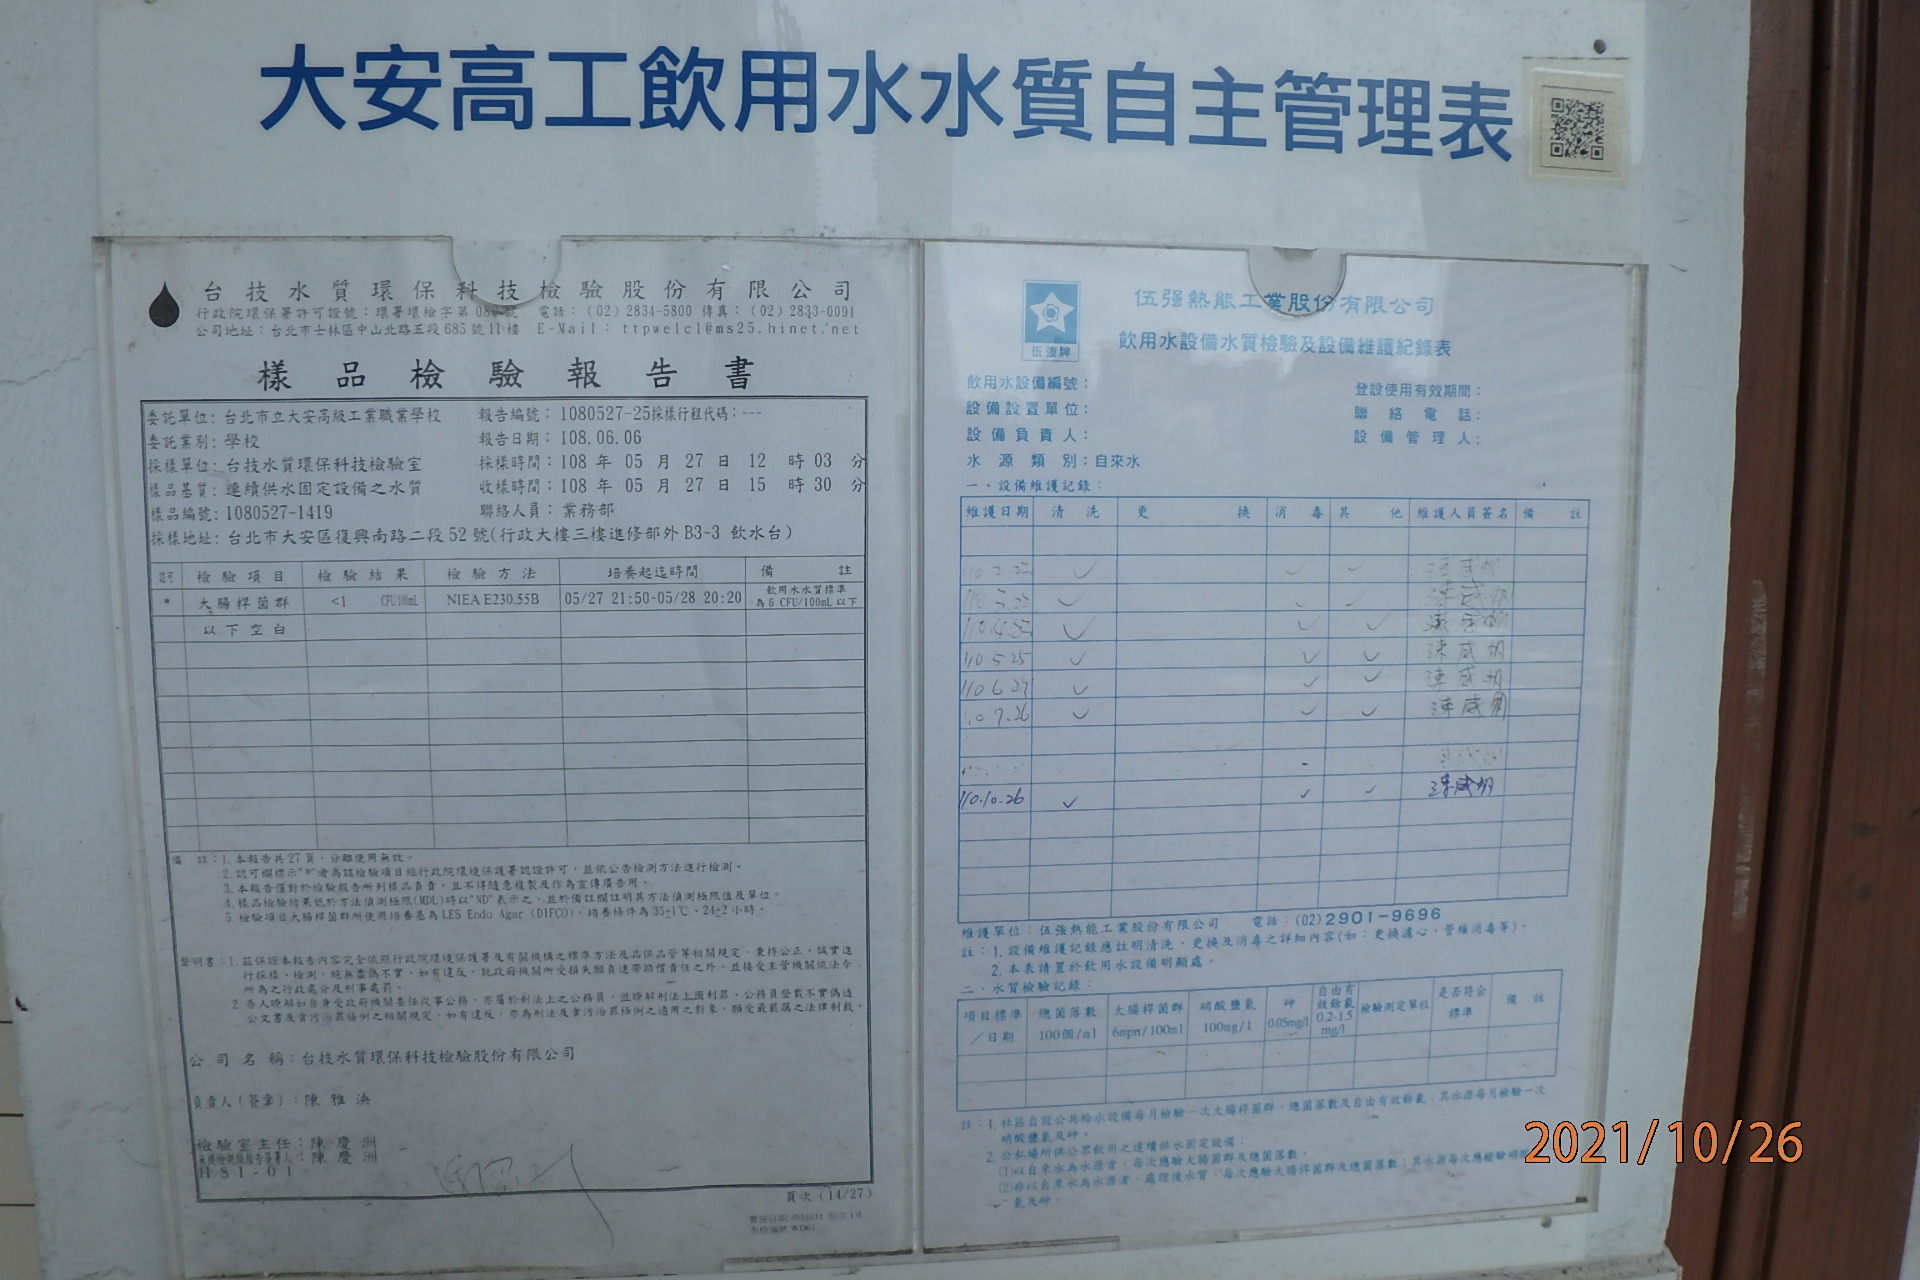 大安高工飲用水水質自主管理表
台技水質環保科技檢驗股份有限公司
行政院環保署許可證號：環署環檢字第 電話：(02)2834-5800 傳真：(02)2833-0091
公司地址：台北市士林區中山北路五段685號11樓 E-Mail：ttpwelcl@ms25.hinet.net
樣品檢驗報告書
委託單位：台北市立大安高級工業職業學校 報告編號：1080527-25採樣行程代碼：---
委託業別：學校 報告日期：108.06.06
採樣單位：台技水質環保科技檢驗室 採樣時間：108 年 05 月 27 日 12 時 03 分
樣品基質：連續供水固定設備之水質 收樣時間：108 年 05 月 27 日 15 時 30 分
樣品編號：1080527-1419 聯絡人員：業務部
採樣地址：台北市大安區復興南路二段52號(行政大樓三樓進修部外B3-3 飲水台)
認可 檢驗項目 檢驗結果 檢驗方法 培養起迄時間 備註
* 大腸桿菌群 <1 CFU/100mL NIEA E230.55B 05/27 21:50-05/28 20:20 飲用水水質標準為6 CFU/100mL以下
以下空白
備註：1.本報告共27頁，分離使用無效。
2.認可欄標示"*"者為該檢驗項目經行政院環境保護署認證許可，並依公告檢測方法進行檢測。
3.本報告僅對於檢驗報告所列樣品負責，且不得隨意複製及作為宣傳廣告用。
4.樣品檢驗結果低於方法偵測極限(MDL)時以"ND"表示之，並於備註欄註明其方法偵測極限值及單位。
5.檢驗項目大腸桿菌群所使用培養基為LES Endo Agar (DIFCO)，培養條件為35±1℃、24±2小時。
聲明書：1.茲保證本報告內容完全依照行政院環境保護署及有關機構之標準方法及品保品管等相關規定，秉持公正、誠實進
行採樣、檢測，絕無虛偽不實，如有違反，就政府機關所受損失願負連帶賠償責任之外，並接受主管機關依法令
所為之行政處分及刑事處罰。
2.吾人瞭解如自身受政府機關委任從事公務，亦屬於刑法上之公務員，並瞭解刑法上圖利罪、公務員登載不實偽造
公文書及貪污治罪條例之相關規定，如有違反，亦為刑法及貪污治罪條例之適用之對象，願受最嚴厲之法律制裁。
公司名稱：台技水質環保科技檢驗股份有限公司
負責人(簽章)：陳雅
檢驗室主任：陳慶洲
陳慶洲
HSI-01
頁次(14/27)
伍強牌
伍强熱能工業股份有限公司
飲用水設備水質檢驗及設備維護紀錄表
飲用水設備編號： 登設使用有效期間：
設備設置單位： 聯絡電話：
設備負責人： 設備管理人：
水源類別：自來水
一、設備維護記錄：
維護日期 清洗 更換 消毒 其他 維護人員簽名 備註
110 5 25 ✓ ✓ ✓
110 6 29 ✓ ✓ ✓
10.7.26 ✓ ✓ ✓
110.10.26 ✓ ✓ ✓
維護單位：伍強熱能工業股份有限公司 電話：(02)2901-9696
註：1.設備維護記錄應註明清洗，更換及消毒之詳細內容(如：更換濾心、管維消毒等)。
2.本表請置於飲用水設備明顯處。
二、水質檢驗記錄：
項目標準／日期 總菌落數100個/ml 大腸桿菌群6mpn/100ml 硝酸鹽氮100mg/l 砷0.05mg/l 自由有效餘氯0.2-1.5mg/l 檢驗測定單位 是否符合標準 備註
註：1.社區自設公共給水設備每月檢驗一次大腸桿菌群、總菌落數及自由有效餘氯；其水源每月檢驗一次
硝酸鹽氮及砷。
2.公私場所供公眾飲用之連續供水固定設備：
(1)以自來水為水源者，每次應驗大腸桿菌群及總菌落數。
(2)非以自來水為水源者，處理後水質，每次應驗大腸桿菌群及總菌落數；其水源每次應檢驗硝酸
氮及砷。
2021/10/26